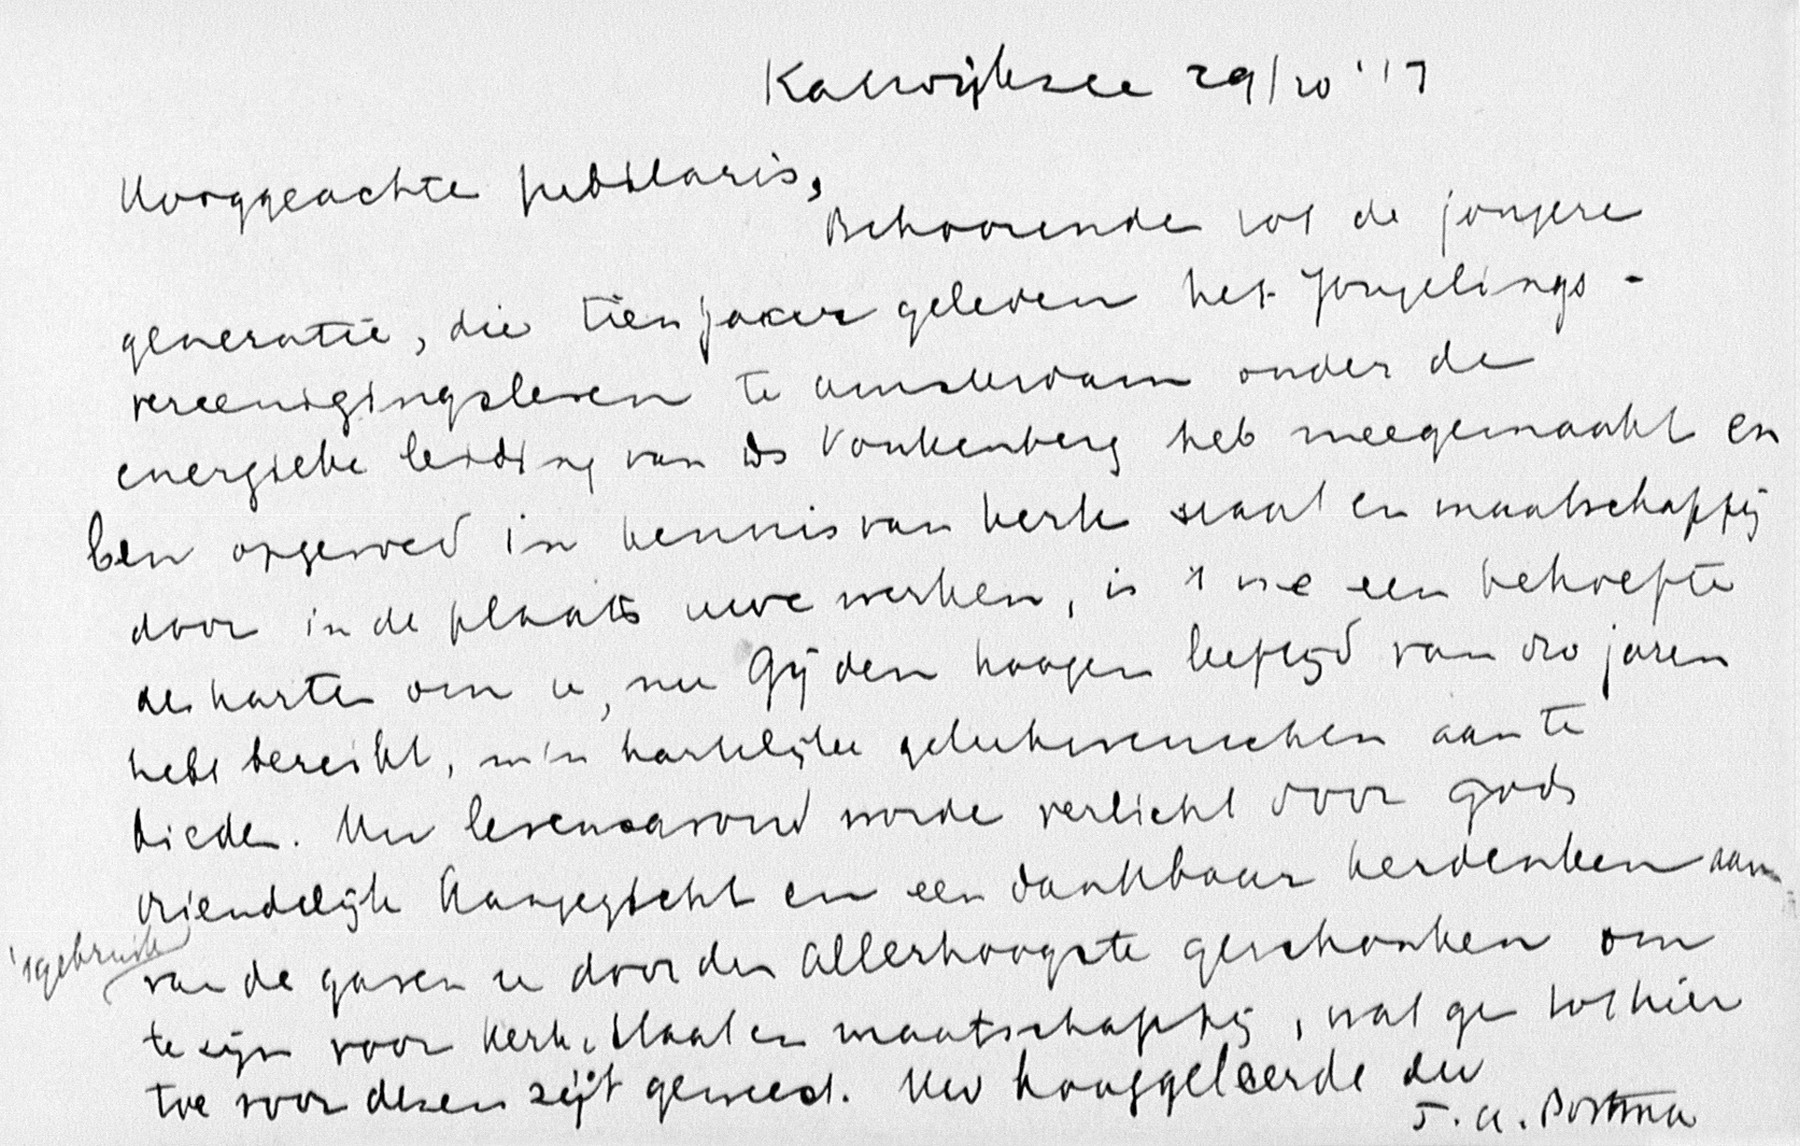 Katwijksee 29/10 '17
Hooggeachte jubilaris,
Behoorende tot de jongere
generatie, die tien jaar geleden het Jongelings-
vereenigingsleven te Amsterdam onder de
energieke leiding van Ds Vonkenberg heb meegemaakt en
ben opgevoed in kennis van kerk staat en maatschappij
door in de plaats uwe werken, is 't me een behoefte
des harten om u, nu Gij den hoogen leeftijd van 80 jaren
hebt bereikt, m'n hartelijke gelukwenschen aan te
bieden. Uw levensavond worde verlicht door Gods
vriendelijk Aangezicht en een dankbaar herdenken aan
't gebruik
van de gaven u door den Allerhoogste geschonken om
te zijn voor kerk, staat en maatschappij, wat ge tot hier
toe voor dezen zijt geweest. Uw hooggeleerde dw
J. A. Postma